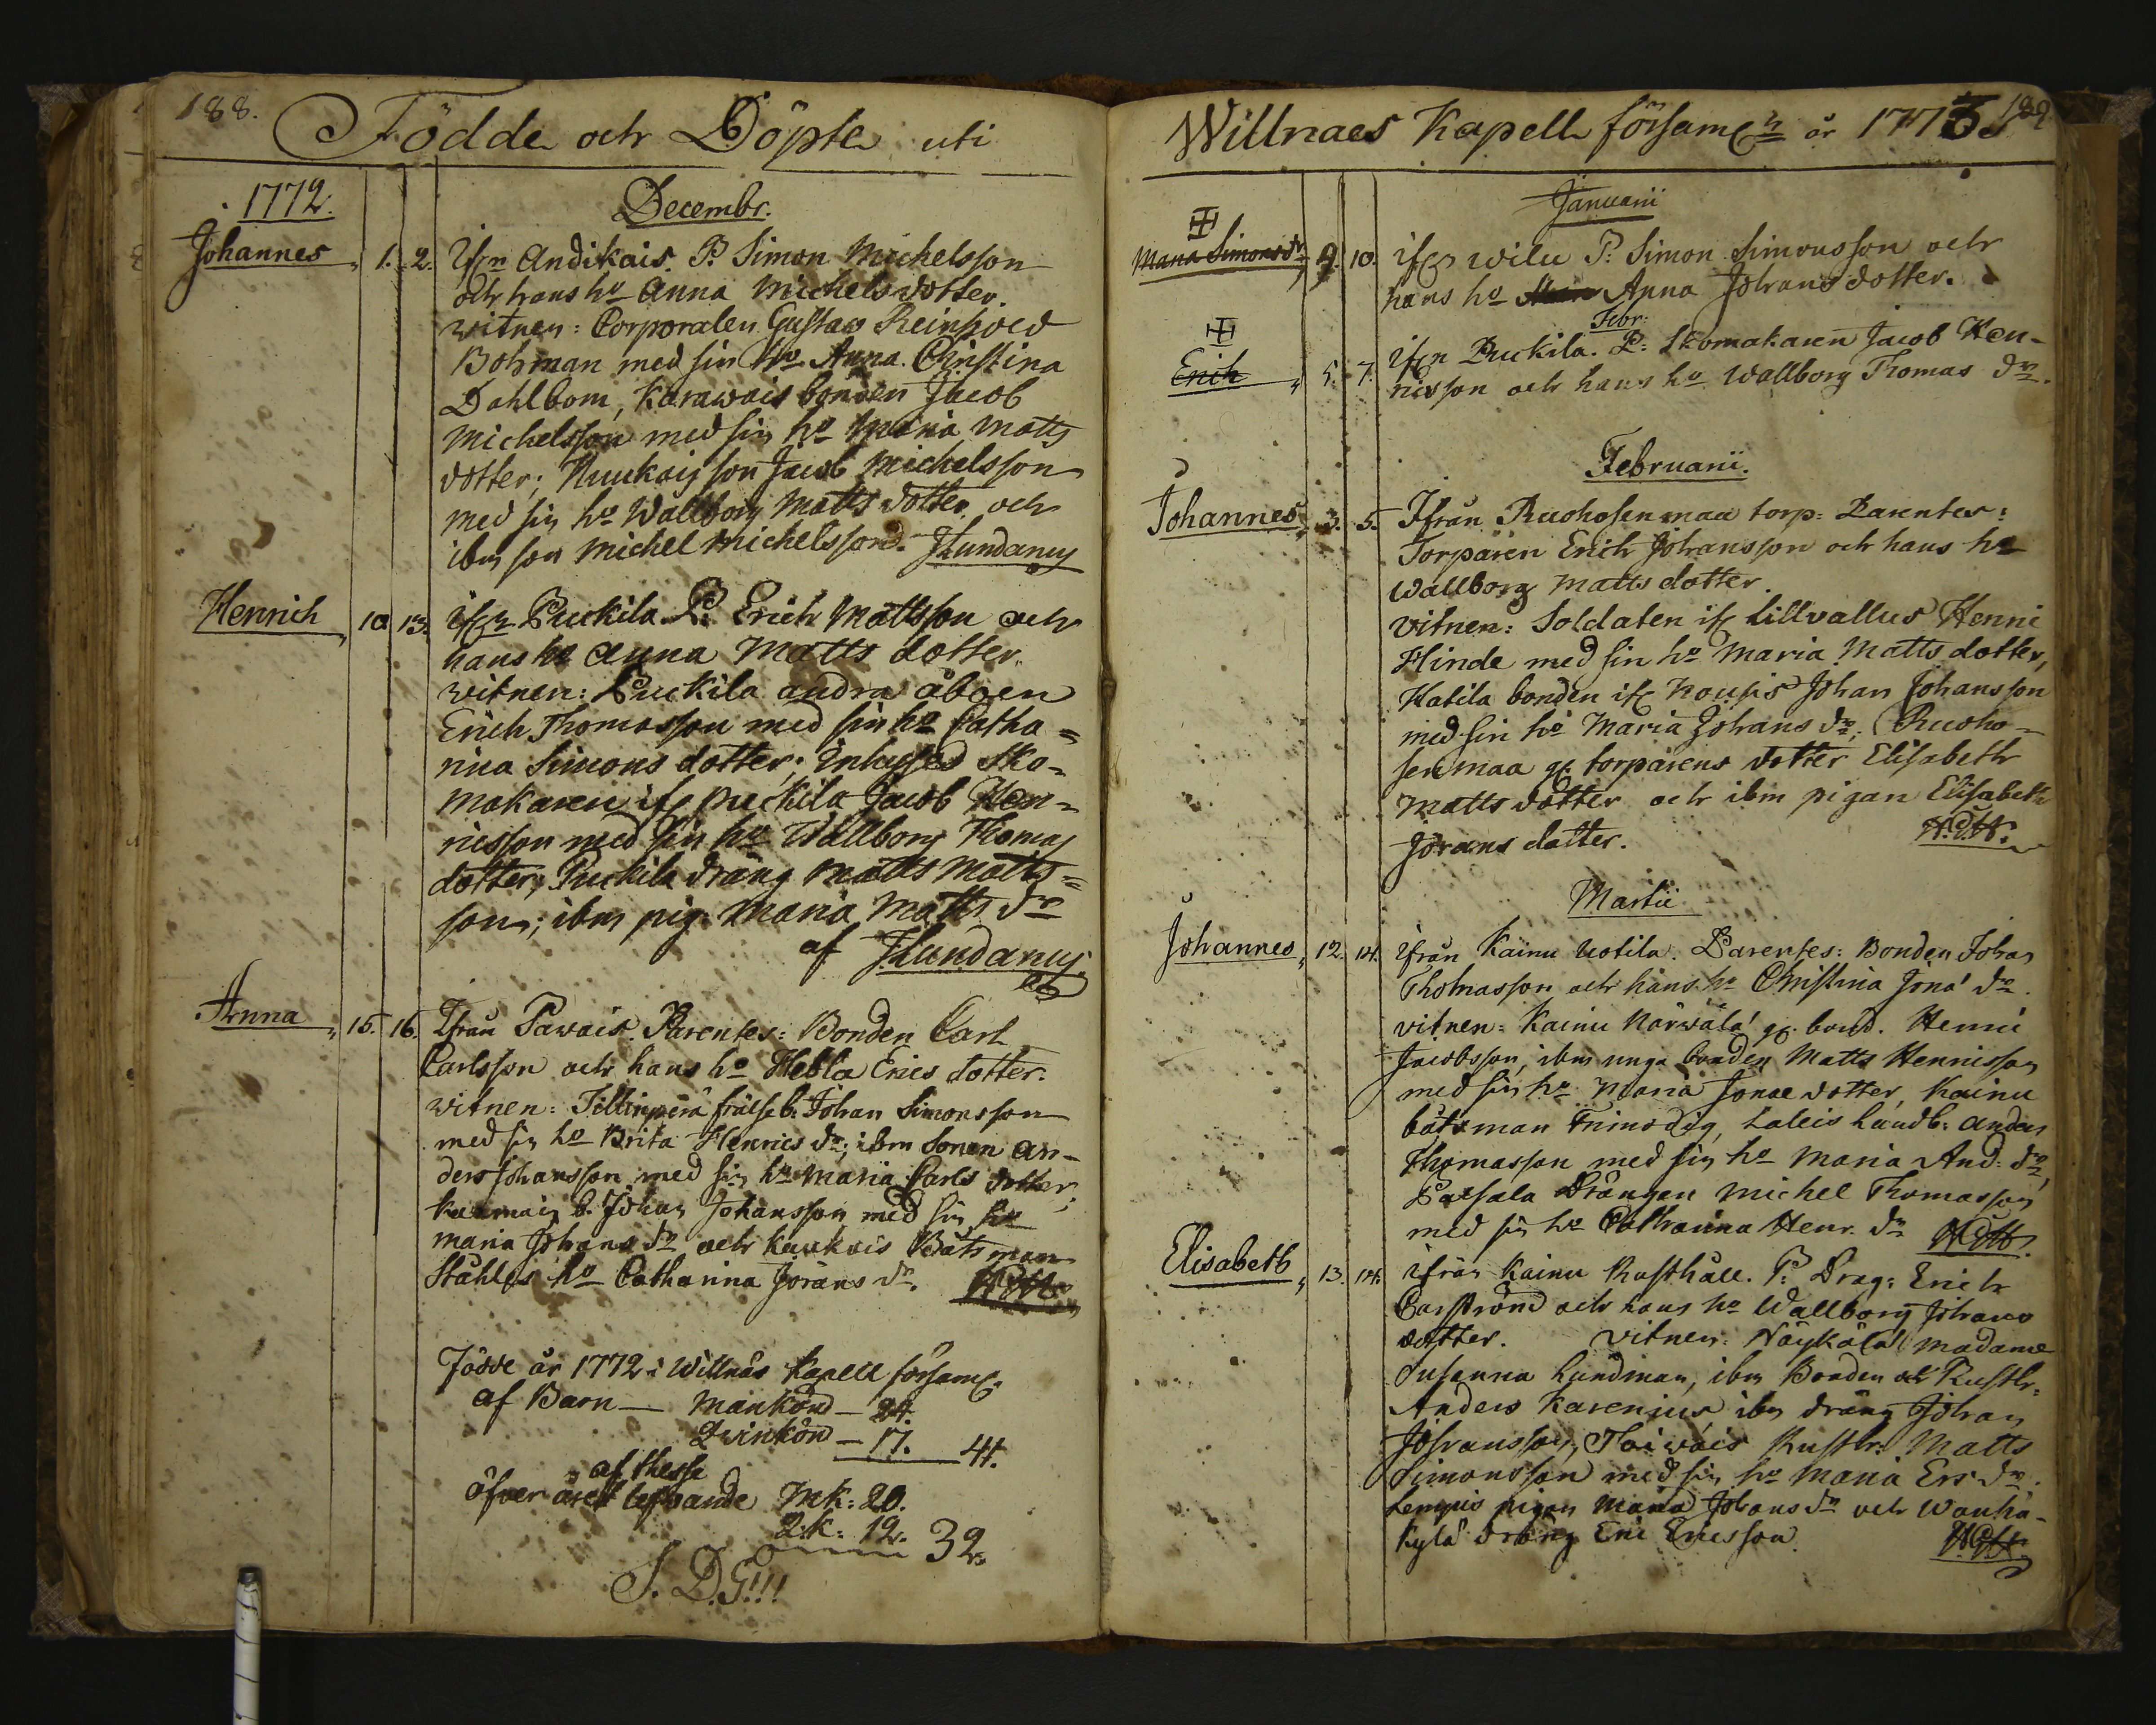 188.
Födde och Döpte uti
1772.
Decembr.
Johannes 1. 2. Ifrn Andikais. P. Simon Michelsson
och hans ho Anna Michelsdotter.
witnen: Corporalen Gustaw Reinhold
Bohrman med sin ho Anna Christina
Dahlbom, Karawais bonden Jacob
Michelsson med sin ho Maria Matts
dotter; son Jacob Michelsson
med sin ho Wallborg Matts dotter och
ibm son Michel Michelsson. JLundanus
Henrich 10 13. ifrn Puckila P: Erich Mattsson och
hans ho Anna Matts dotter.
witnen: Puckila andra åboen
Erich Thomasson med sin ho Catha=
rina Simons dotter; Inhyses Sko=
makaren if Puckila Jacob Hen=
ricsson med sin ho Wallborg Thomas
dotter; Puckila dräng Matts Matts=
son; ibm pig. Maria Matts dr
af JLundanus
Anna 15. 16. Ifrån Pawais. Parentes: Bonden Carl
Carlsson och hans ho Hebla Erics dotter.
witnen: frälseb: Johan Simonsson
med sin ho Brita Henrics dr; ibm Sonen An-
ders Johansson med sin ho Maria Carls dotter;
b. Johan Johansson med sin ho
Maria Johans dr och Kaukais Båtsman
Ståhles ho Catharina Jörans dr.
Födde år 1772 i Willnäs Kapell församl.
af Barn — Mankönd — 24.
Qvinkönd — 17. 41.
af thesse
öfver året lefvande Mk: 20.
Q:K: 12. 32.
S. D. G!!!
Willnaes Kapell församl:n år 1773. 189
Januarii
Maria Simonsdr 9. 10. ifrn wilu P: Simon Simonsson och
hans ho Anna Johans dotter.
Febr:
Erich 5. 7. ifrn Puckila. P: Skomakaren Jacob Hen-
ricsson och hans ho Wallborg Thomas dr.
Februarii.
Johannes 3. 5. Ifrån Ruohosenmaa torp. Parentes:
Torparen Erich Johansson och hans ho
Wallborg Matts dotter.
Vitnen: Soldaten if Lillvallus Henric
Hinde med sin ho Maria Matts dotter,
Katila bonden if Johan Johansson
med sin ho Maria Johans dr; Ruoho-
senmaa gl torparens dotter Elisabeth
Matts dotter och ibm pigan Elisabeth
Jörans dotter.
Martii
Johannes 12. 14. ifrån Kainu Uotila. Parentes: Bonden Johan
Thomasson och hans ho Christina Jona dr.
vitnen: Kainu Närwälä gl. bond. Henric
Jacobsson, ibm unga bonden Matts Henricsson
med sin ho Maria Jonae dotter, Kainu
båtsman Frimodig, Laleis landb: Anders
Thomasson med sin ho Maria And: dr,
drängen Michel Thomasson
med sin ho Catharina Henr. dr
Elisabeth 13. 14. ifrån Kainu Rusthåll. P: Drag: Erich
och hans ho Wallborg Johans
dotter. vitnen: Madame
Susanna Lundman, ibm Bonden Rusth:
Anders Karenius ibm dräng Johan
Johansson, Rusth: Matts
Simonsson med sin ho Maria Ers dr.
pigan Maria Johans dr och Wanha-
kylä dräng Eric Ericsson.